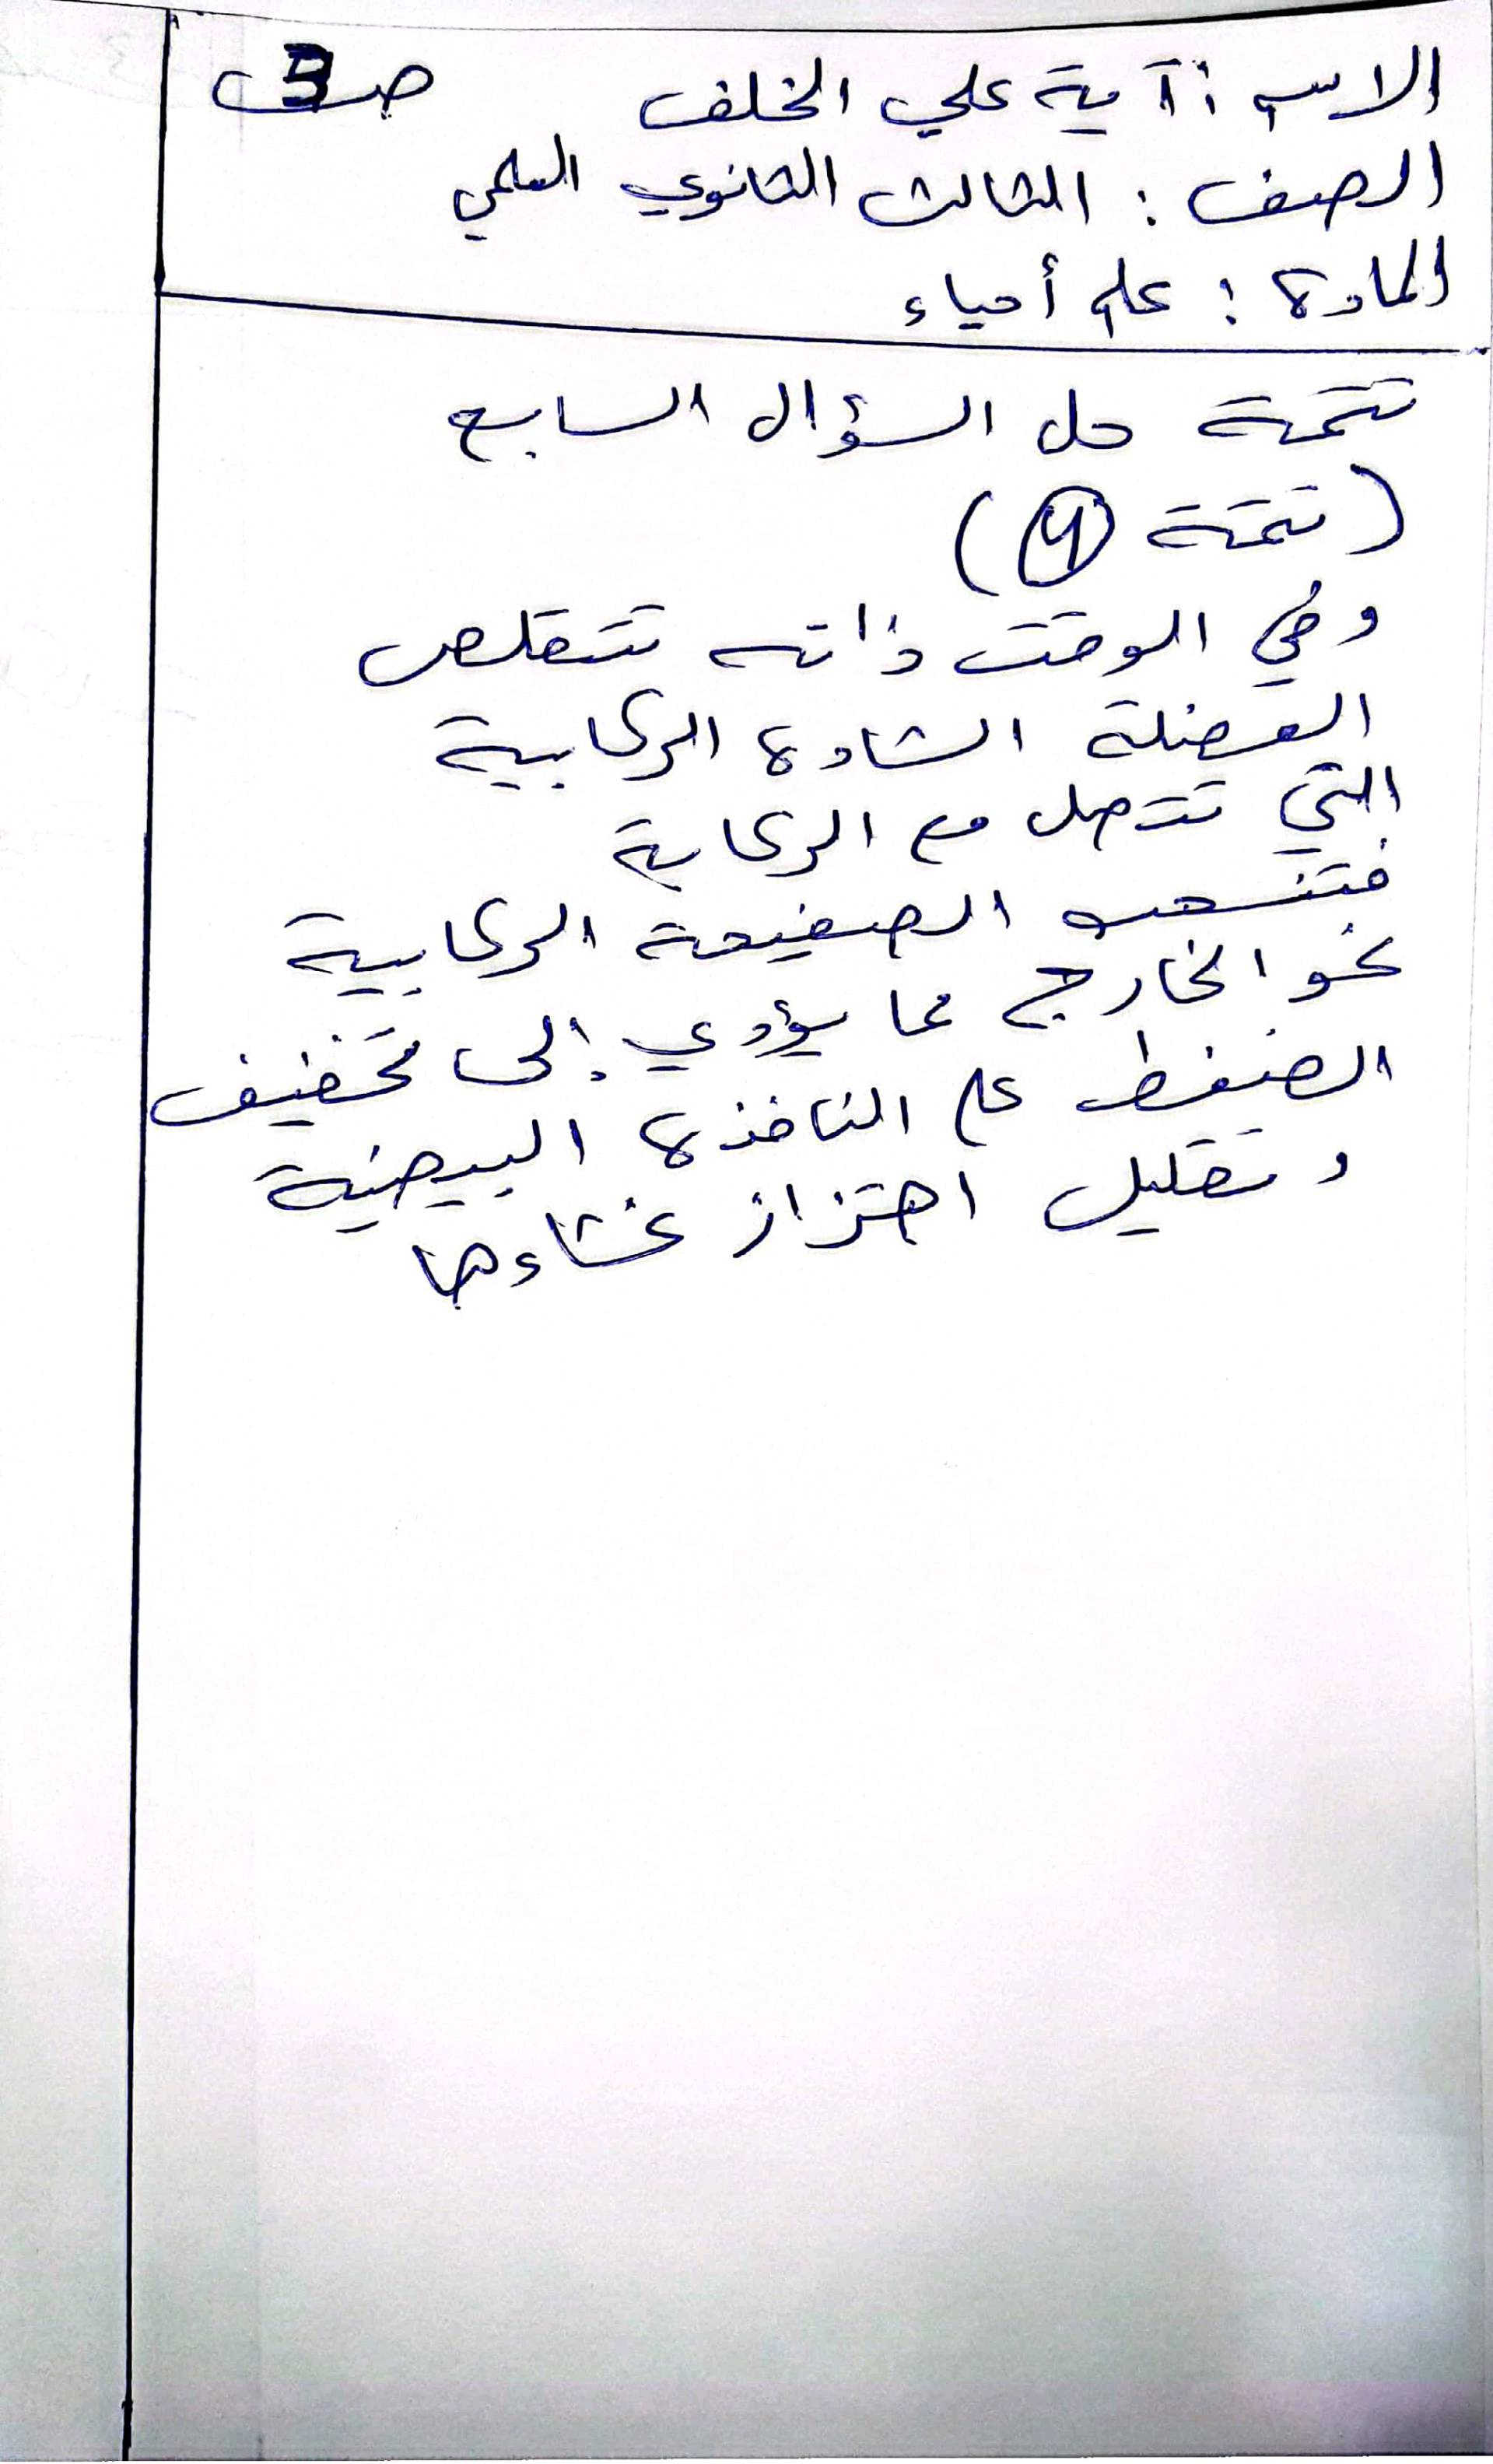 الاسم : آية علي الخلف ص3
الصف : الثالث الثانوي العلمي
المادة : علم أحياء
تتمة حل السؤال السابع
(تتمة 4)
وفي الوقت ذاته تتقلص
العضلة الشادة الركابية
التي تتصل مع الركابة
فتنسحب الصفيحة الركابية
نحو الخارج مما يؤدي إلى تخفيف
الضغط على النافذة البيضية
وتقليل اهتزاز غشاءها